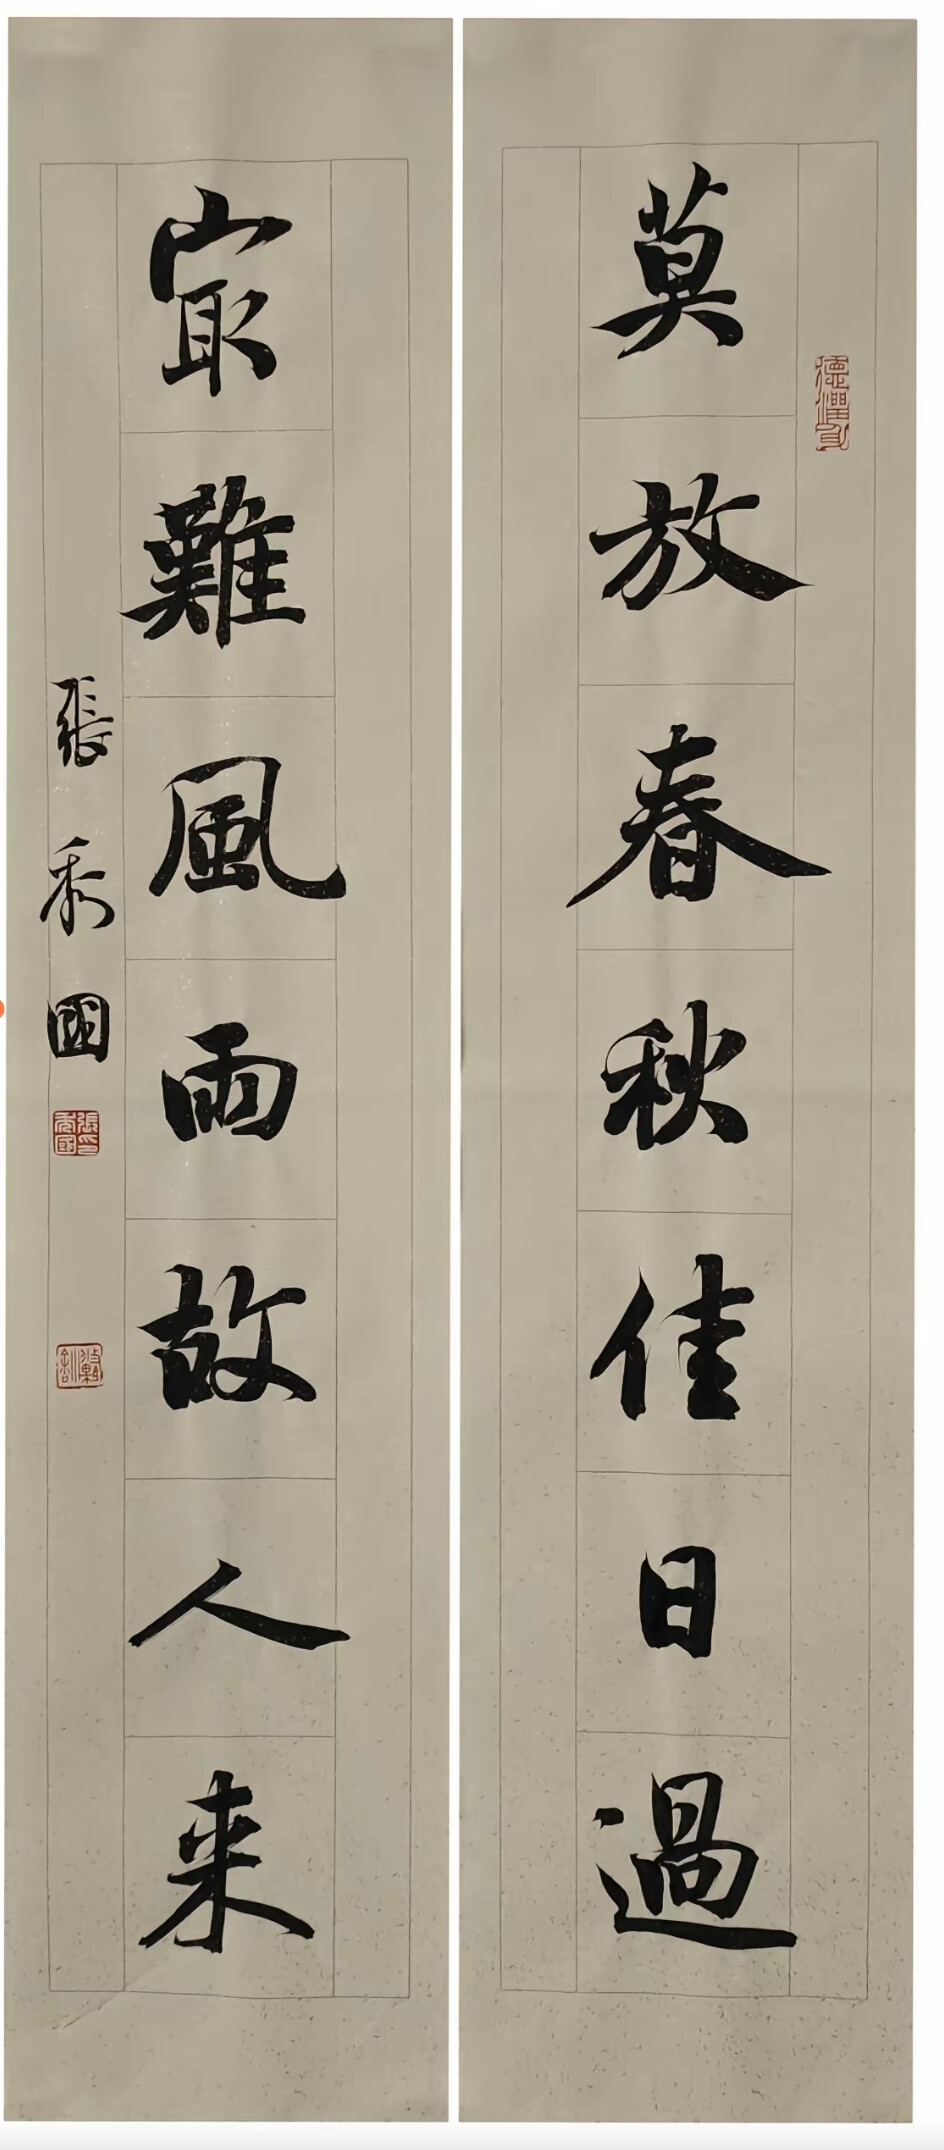 莫放春秋佳日過
冣難風雨故人来
張秀國